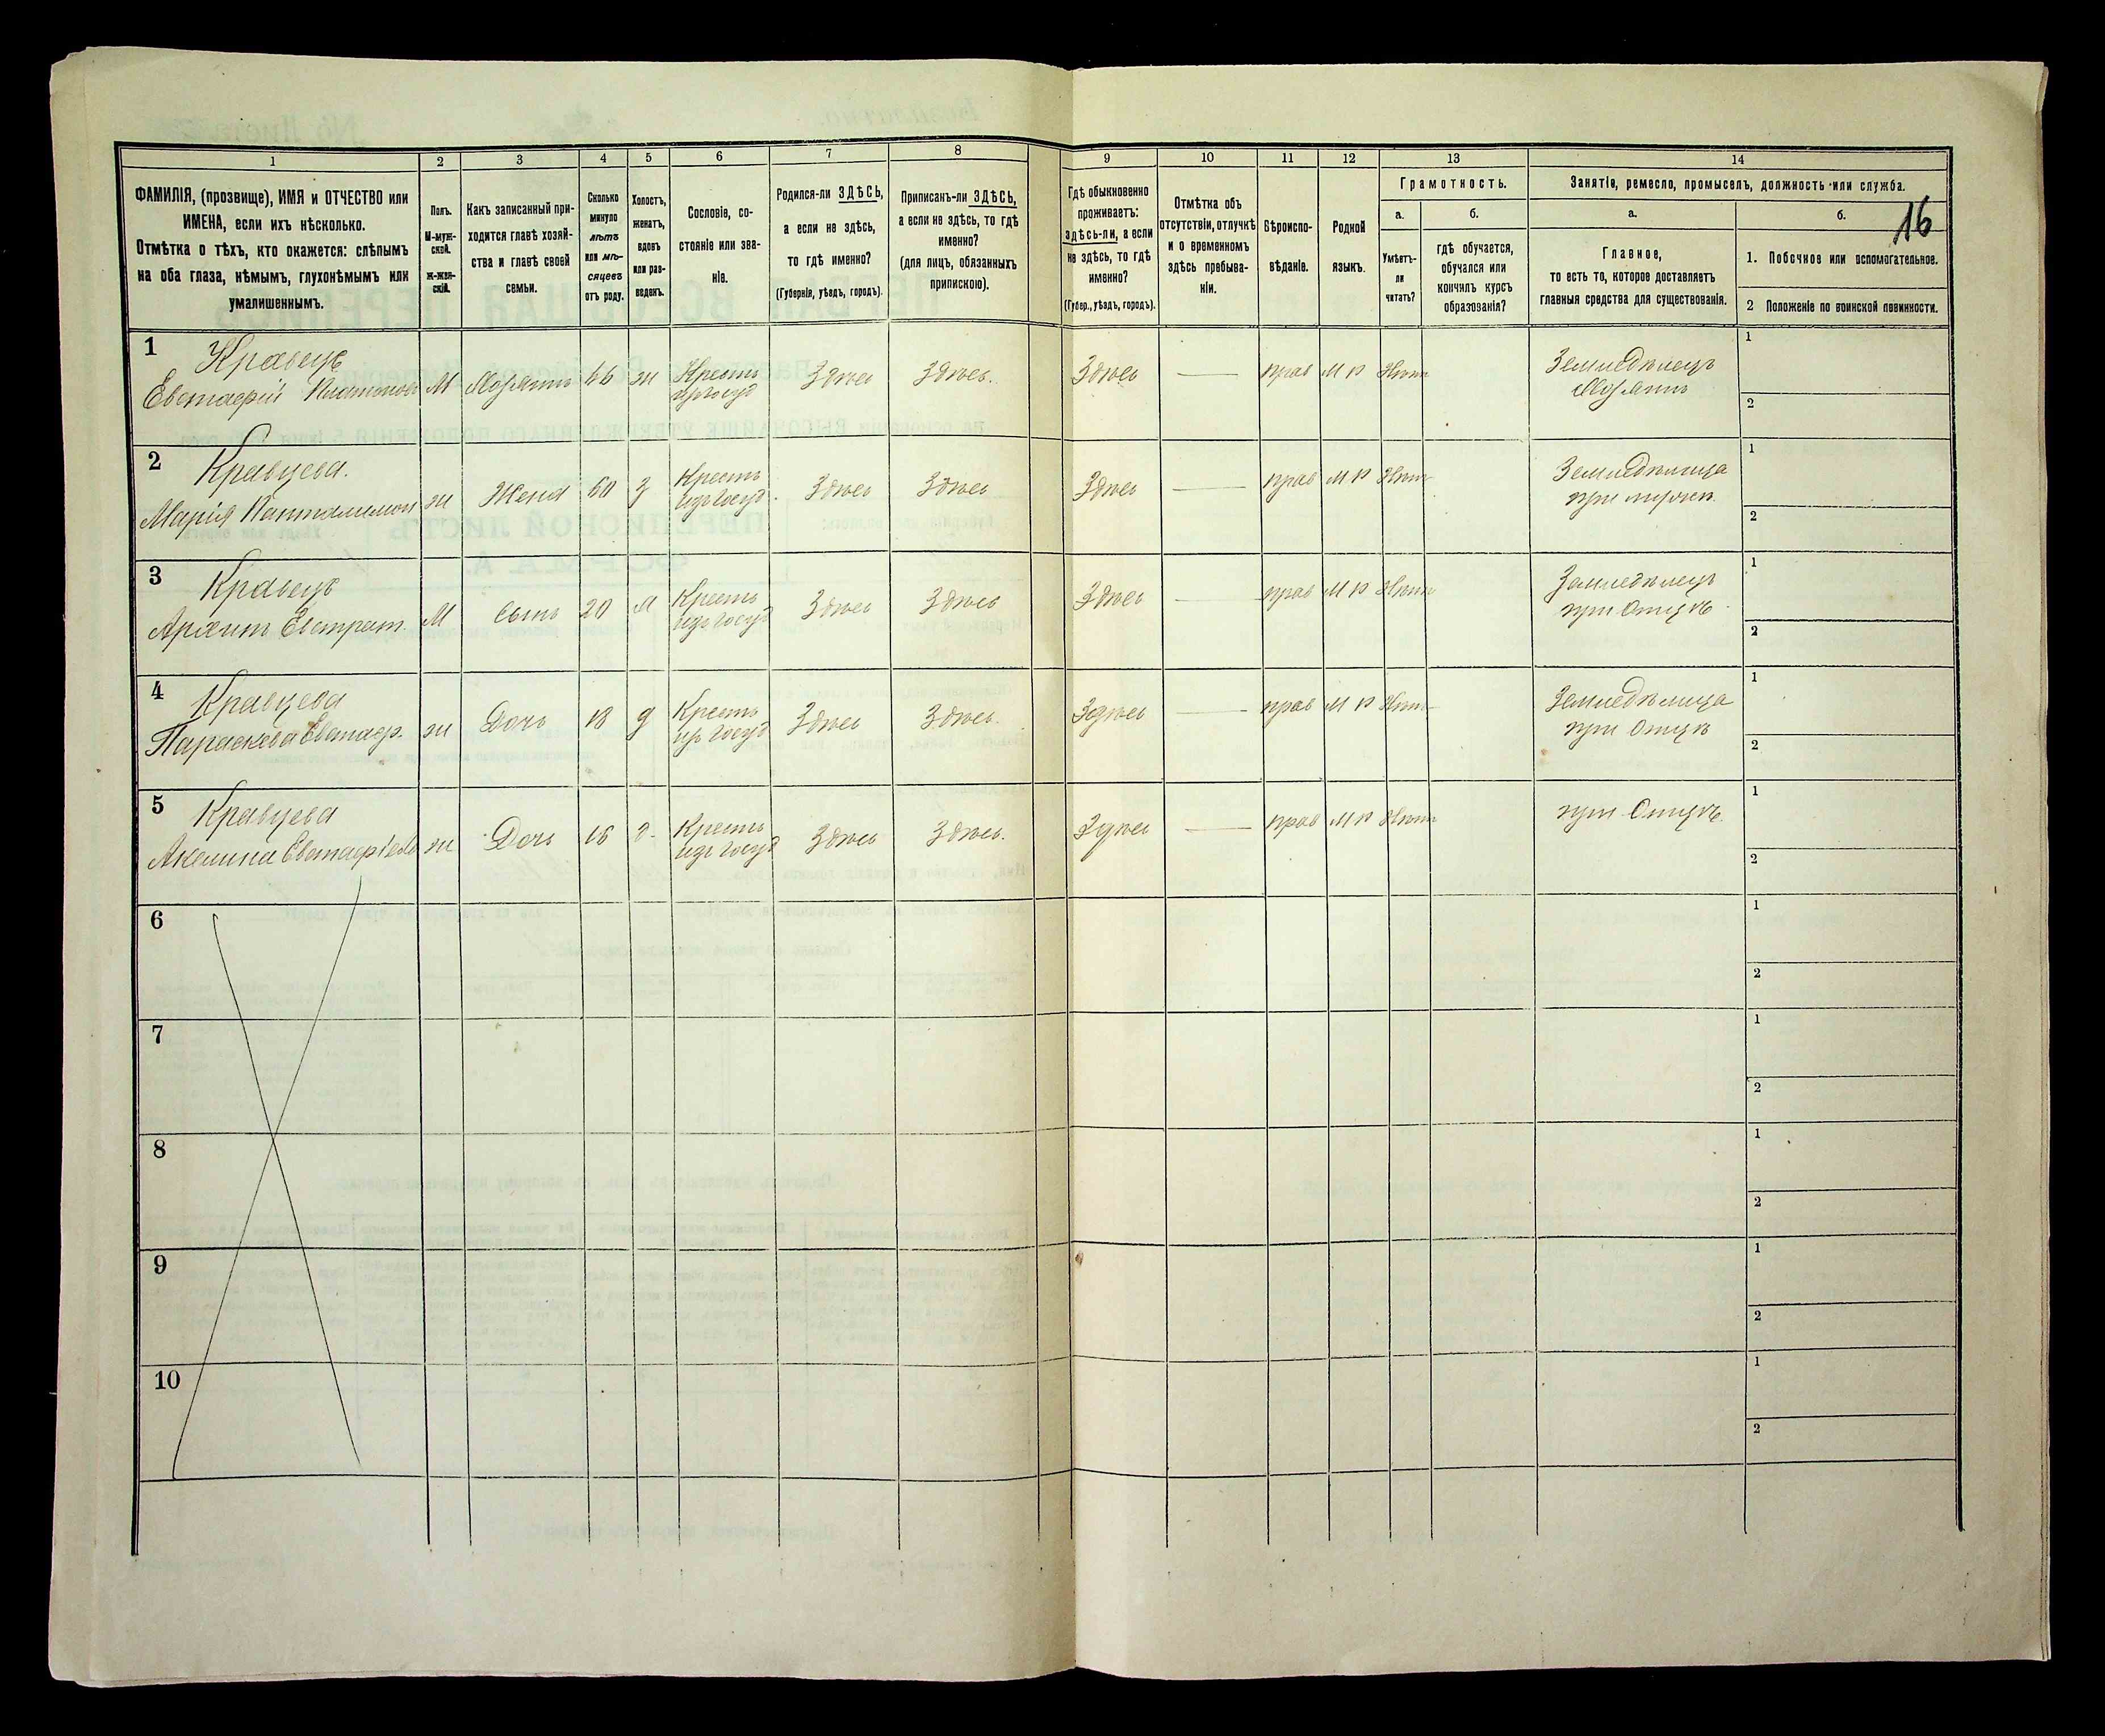 16
1 2 3 4 5 6 7 8 9 10 11 12 13 14
ФАМИЛІЯ, (прозвище), ИМЯ и ОТЧЕСТВО или
ИМЕНА, если ихъ нѣсколько.
Отмѣтка о тѣхъ, кто окажется: слѣпымъ
на оба глаза, нѣмымъ, глухонѣмымъ или
умалишеннымъ.
Полъ.
М-муж-
ской.
ж-жен-
скій.
Какъ записанный при-
ходится главѣ хозяй-
ства и главѣ своей
семьи.
Сколько
минуло
лѣтъ
или мѣ-
сяцевъ
отъ роду.
Холостъ,
женатъ,
вдовъ
или раз-
веденъ.
Сословіе, со-
стояніе или зва-
ніе.
Родился-ли ЗДѢСЬ,
а если не здѣсь,
то гдѣ именно?
(Губернія, уѣздъ, городъ).
Приписанъ-ли ЗДѢСЬ,
а если не здѣсь, то гдѣ
именно?
(для лицъ, обязанныхъ
припискою).
Гдѣ обыкновенно
проживаетъ:
здѣсь-ли, а если
не здѣсь, то гдѣ
именно?
(Губер., уѣздъ, городъ).
Отмѣтка объ
отсутствіи, отлучкѣ
и о временномъ
здѣсь пребыва-
ніи.
Вѣроиспо-
вѣданіе.
Родной
языкъ.
Грамотность.
а.
Умѣетъ-
ли
читать?
б.
гдѣ обучается,
обучался или
кончилъ курсъ
образованія?
Занятіе, ремесло, промыселъ, должность или служба.
а.
Главное,
то есть то, которое доставляетъ
главныя средства для существованія.
б.
1. Побочное или вспомогательное.
2 Положеніе по воинской повинности.
1 Кравецъ
Евстафій Платонов М Хозяинъ 66 ж Крестъ Здѣсь Здѣсь. Здѣсь прав М р Нѣтъ Земледѣлецъ
изъ госуд Хозяинъ
1
2
2 Кравцева.
Марія Пантилимон ж Жена 60 з Крестъ Здѣсь Здѣсь Здѣсь прав М р Нѣтъ Земледѣлица
изъ госуд при мужѣ.
1
2
3 Кравецъ
Архипъ Евстрат. М Сынъ 20 Крестъ Здѣсь Здѣсь Здѣсь прав М р Нѣтъ Земледѣлецъ
изъ госуд при Отцѣ
1
2
4 Кравцева
Параскева Евстаф. ж Дочь 18 д Крестъ Здѣсь Здѣсь. Здѣсь прав М р Нѣтъ Земледѣлица
изъ госуд при Отцѣ
1
2
5 Кравцева
Акелина Евстафіева ж Дочь 16 д Крестъ Здѣсь Здѣсь. Здѣсь прав М р Нѣтъ при Отцѣ
изъ госуд
1
2
6
1
2
7
1
2
8
1
2
9
1
2
10
1
2